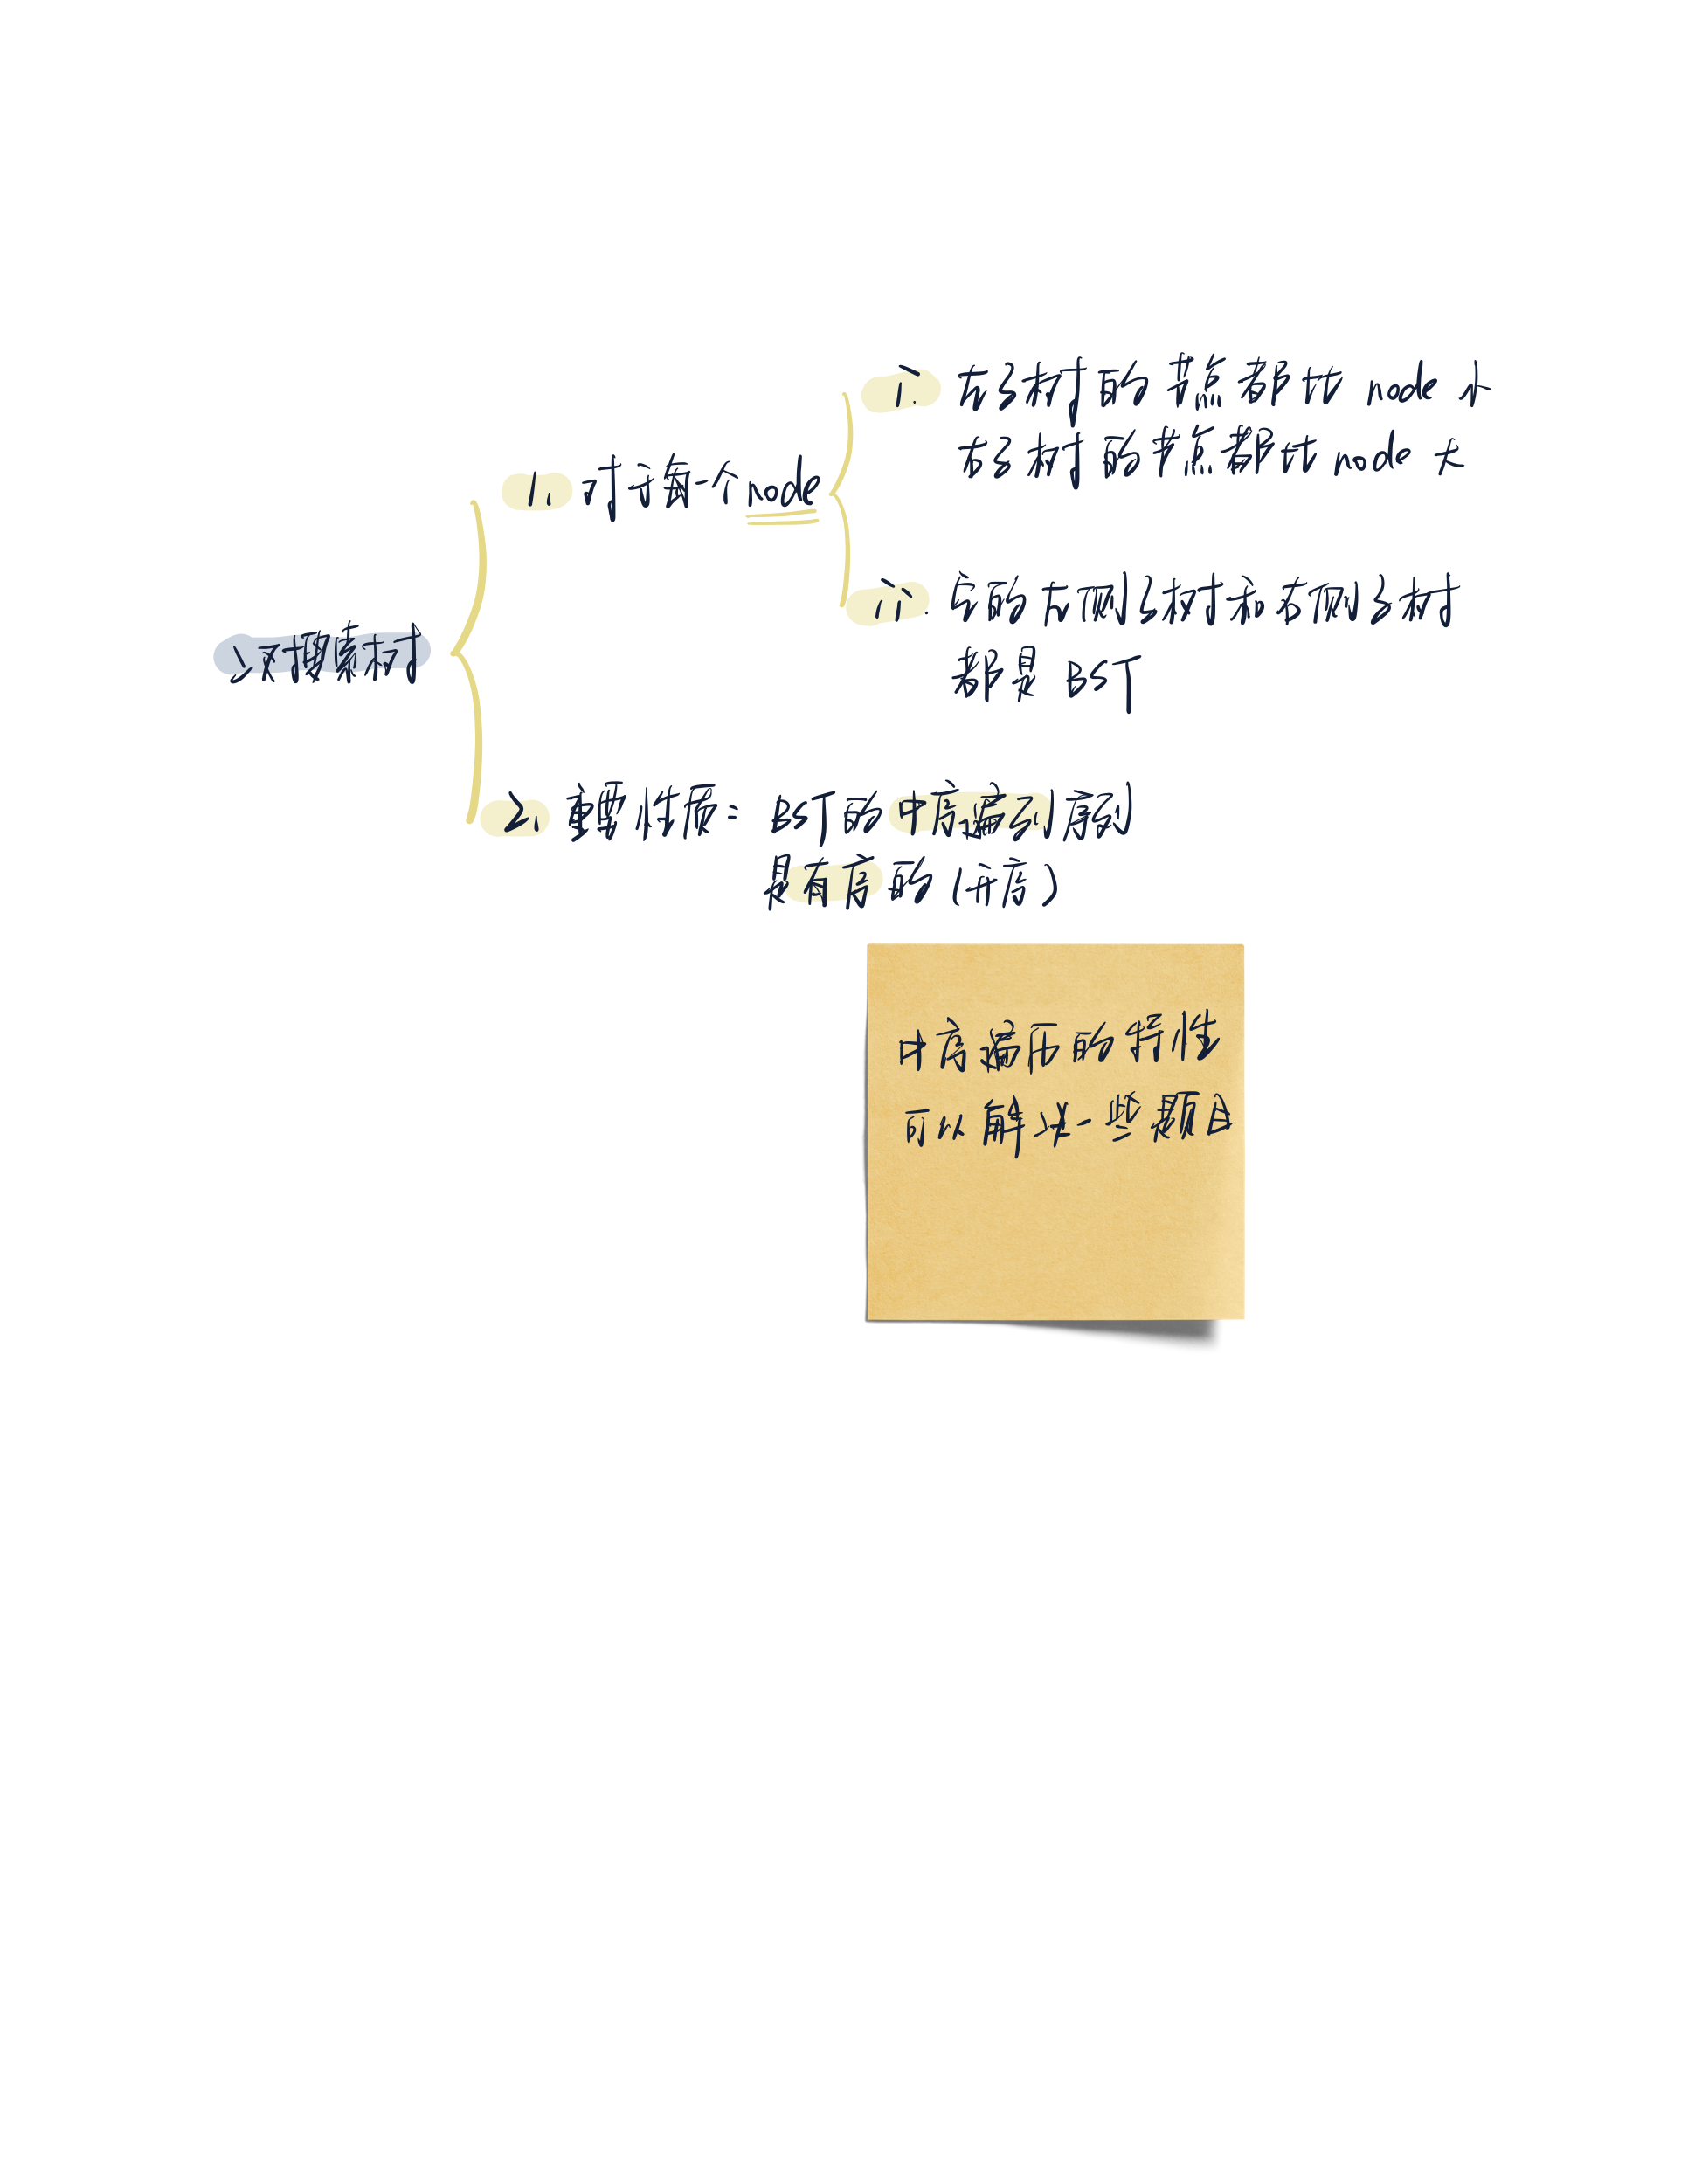 二叉搜索树
1. 对于每一个node
i. 左子树的节点都比 node 小
右子树的节点都比 node 大
ii. 它的左侧子树和右侧子树
都是 BST
2. 重要性质: BST的中序遍列序列
是有序的(升序)
中序遍历的特性
可以解决一些题目